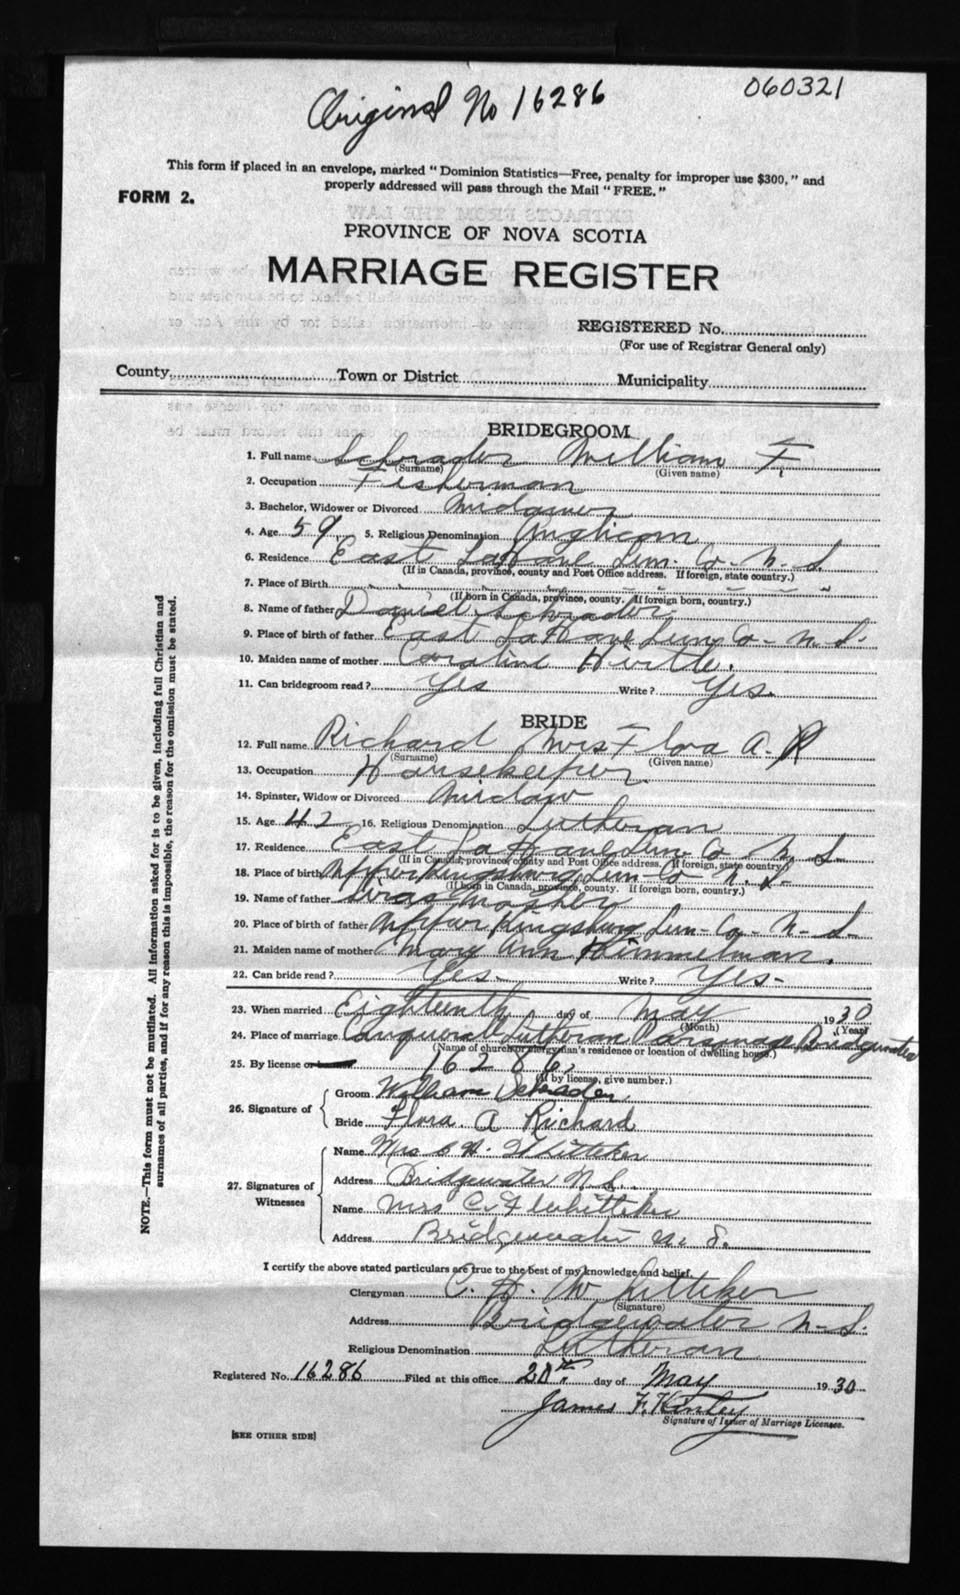 Original No 16286
060321
This form if placed in an envelope, marked "Dominion Statistics—Free, penalty for improper use $300," and
properly addressed will pass through the Mail "FREE."
FORM 2.
PROVINCE OF NOVA SCOTIA
MARRIAGE REGISTER
REGISTERED No.
(For use of Registrar General only)
County Town or District Municipality
BRIDEGROOM
1. Full name Schrader William F.
(Surname) (Given name)
2. Occupation Fisherman
3. Bachelor, Widower or Divorced Widower
4. Age 59 5. Religious Denomination Anglican
6. Residence East LaHave Lun. Co. N. S.
(If in Canada, province, county and Post Office address. If foreign, state country.)
7. Place of Birth " " " " "
(If born in Canada, province, county. If foreign born, country.)
8. Name of father Daniel Schrader
9. Place of birth of father East LaHave Lun Co - N. S.
10. Maiden name of mother Caroline Hirtle.
11. Can bridegroom read? Yes Write? Yes.
BRIDE
12. Full name Richard Mrs Flora A.
(Surname) (Given name)
13. Occupation Housekeeper.
14. Spinster, Widow or Divorced Widow
15. Age 42 16. Religious Denomination Lutheran
17. Residence East LaHave Lun. Co N. S.
(If in Canada, province, county and Post Office address. If foreign, state country.)
18. Place of birth Upper Kingsburg Lun-Co. N. S.
(If born in Canada, province, county. If foreign born, country.)
19. Name of father Mosher
20. Place of birth of father Upper Kingsburg Lun-Co- N- S-
21. Maiden name of mother Mary Ann Himmelman.
22. Can bride read? Yes- Write? Yes-
23. When married Eighteenth day of May 1930
(Month) (Year)
24. Place of marriage Conquerall Lutheran Parsonage Bridgewater
(Name of church or clergyman's residence or location of dwelling house.)
25. By license or banns 16286
(If by license, give number.)
26. Signature of
Groom William Schrader
Bride Flora A Richard
27. Signatures of Witnesses
Name Mrs C H. Whitteker
Address Bridgewater N.S.
Name Mrs C. F Whitteker
Address Bridgewater N. S.
I certify the above stated particulars are true to the best of my knowledge and belief.
Clergyman C. H. Whitteker
(Signature)
Address Bridgewater N-S.
Religious Denomination Lutheran
Registered No. 16286 Filed at this office 20th day of May 1930
James F. Kinley
Signature of Issuer of Marriage Licenses.
[SEE OTHER SIDE]
NOTE.—This form must not be mutilated. All information asked for is to be given, including full Christian and
surnames of all parties, and if for any reason this is impossible, the reason for the omission must be stated.